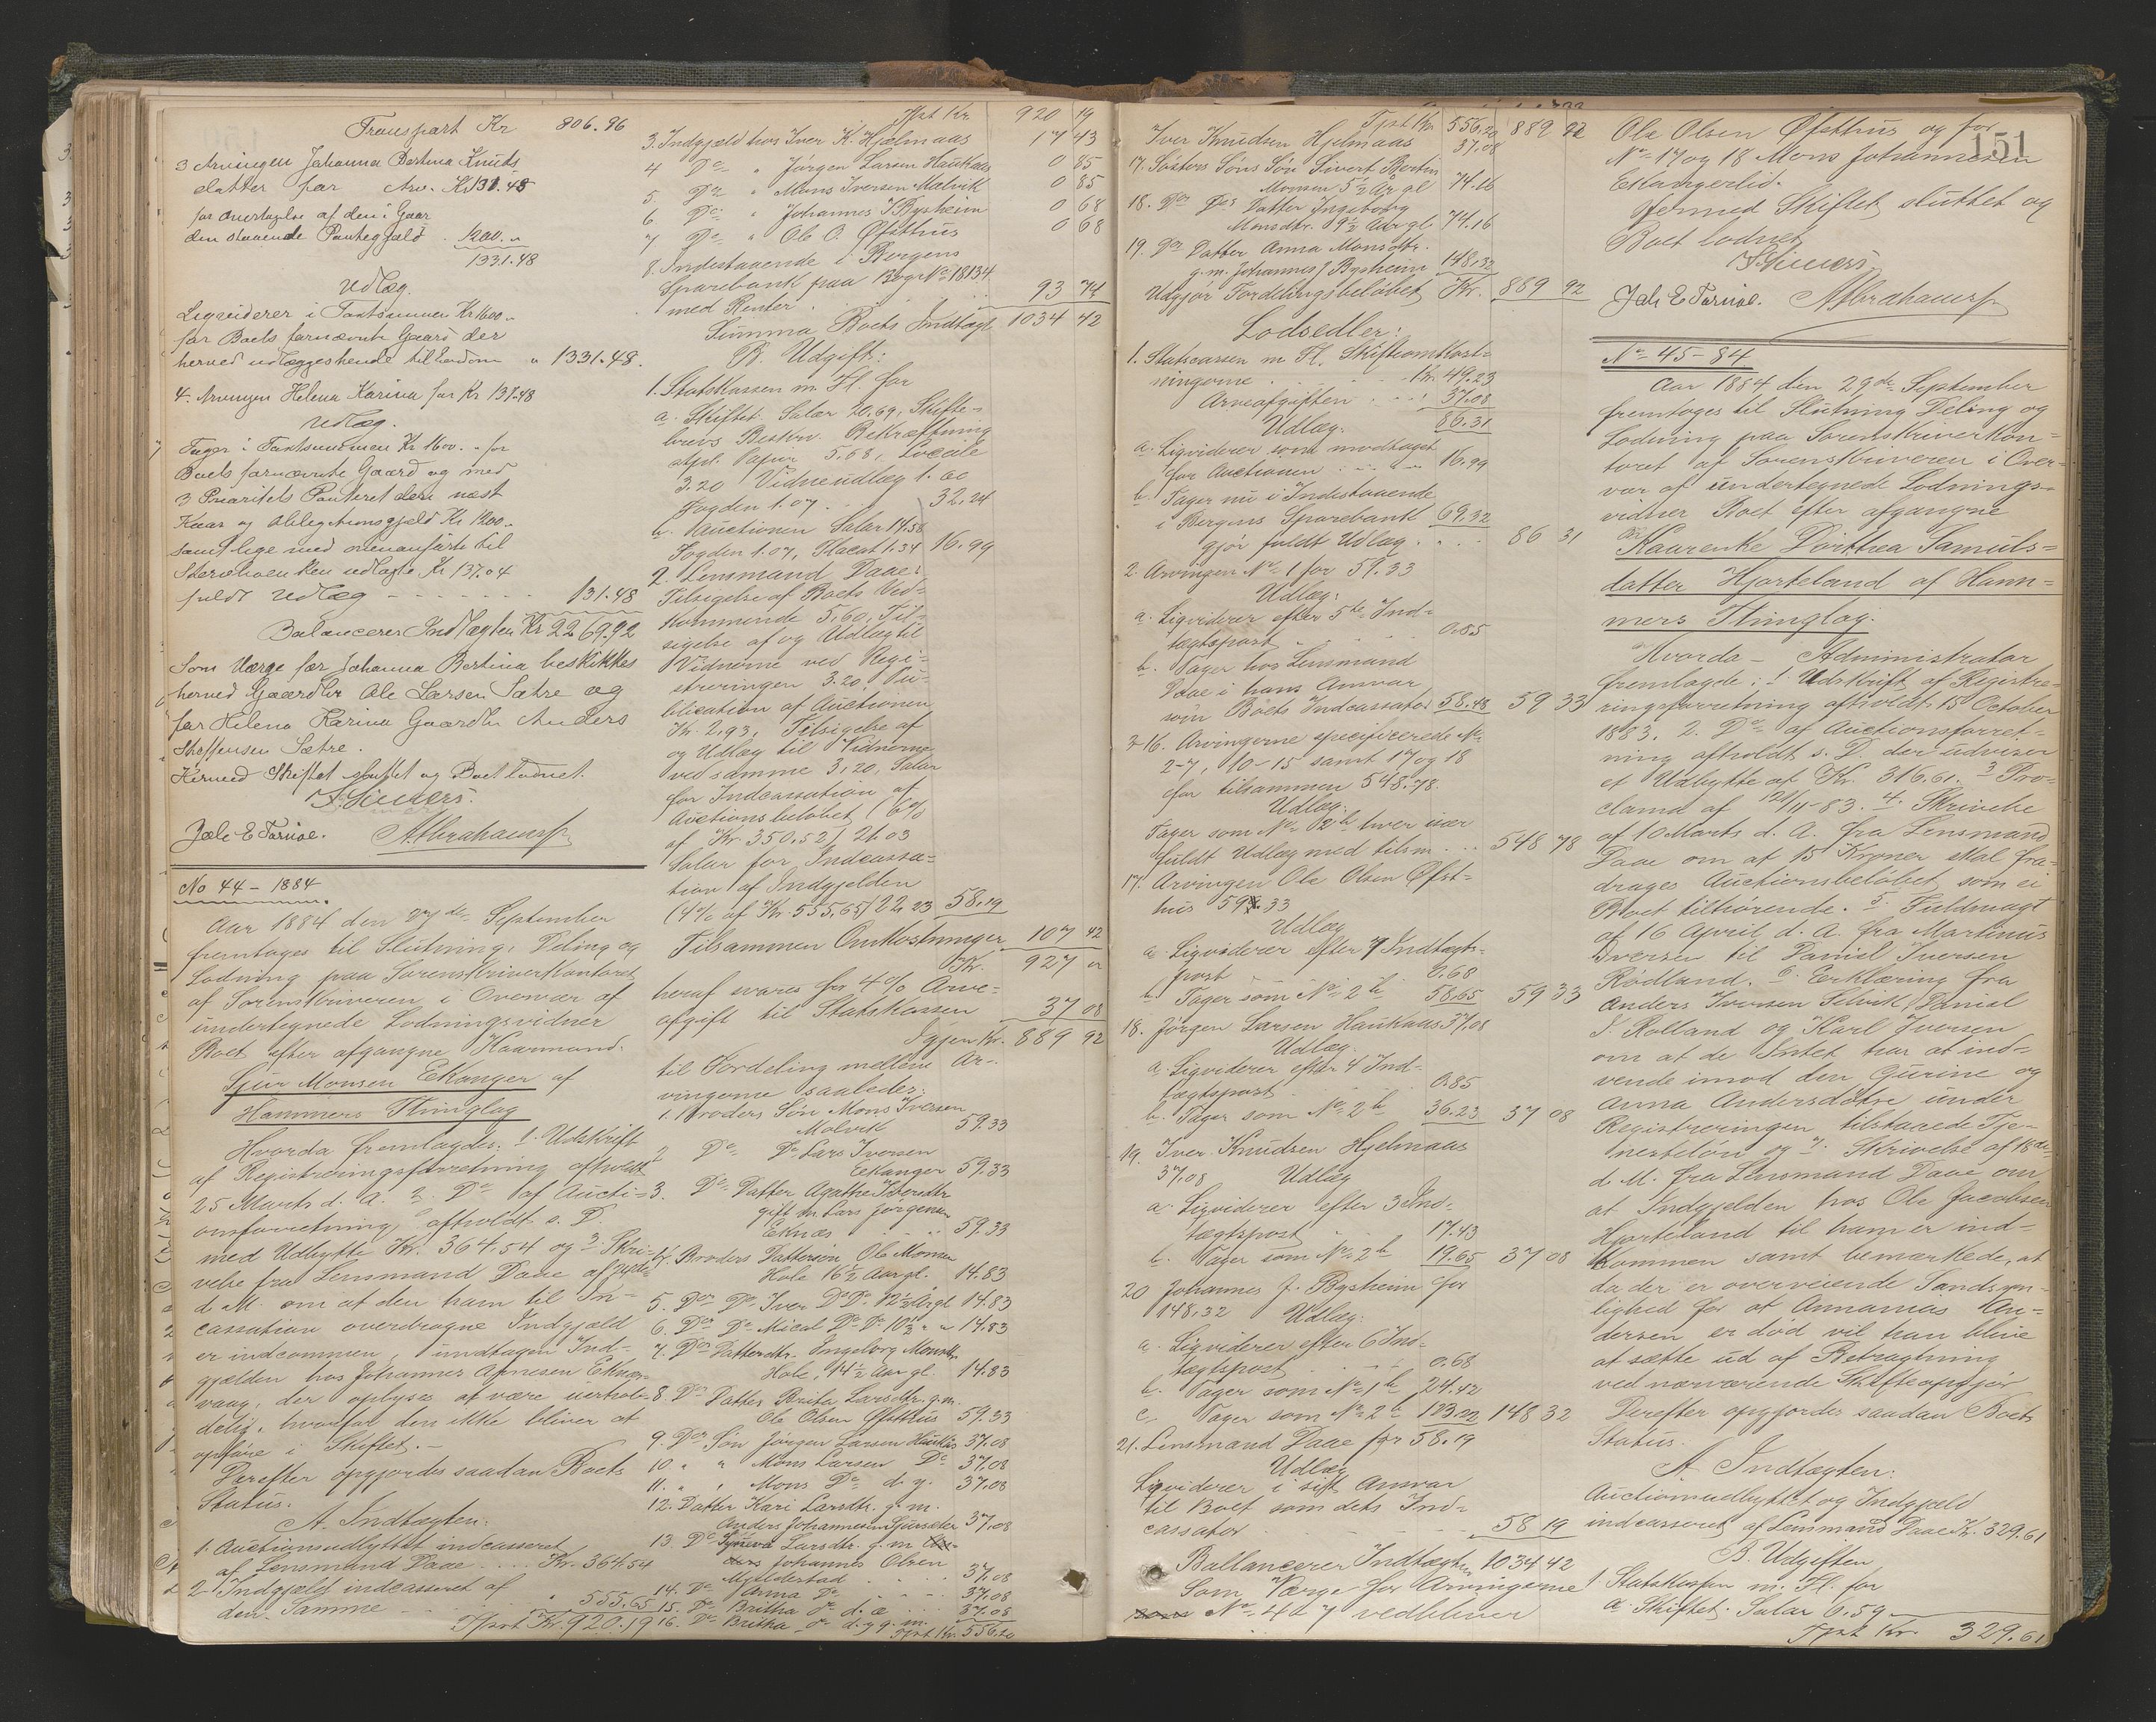 Transport Kr 806.96
3 Arvingen Johanna Bertina Knuts
datter for Arv. Kr 131.48
for overtagelse af den i Gaar
den staaende Pantegjæld 1200.„
1331.48
Udlæg.
Liqviderer i Taxtsummen Kr 1600.„
for Boets fornævnte Gaard der
herved udlægges hende til Eiendom „ 1331.48.
4. Arvingen Helena Karina for Kr 131.48
Udlæg.
Tager i Taxtsummen Kr 1600.„ for
Boets fornævnte Gaard og med
3 Prioritets Panteret den næst
Kaar og Obligationsgjæld Kr 1200.„
samt lige med ovenanførte til
udlagte Kr 137.04
fuldt Udlæg 131.48
Balancerer Indtægten Kr 2269.92
Som Værge for Johanna Bertina beskikkes
herved Gaardbr Ole Larsen Sætre og
for Helena Karina Gaardbr Anders
Steffensen Sætre.
Hermed Skiftet sluttet og Boet lodnet.
Jich E Farsøe. A. Abrahamsen
No 44 – 1884
Aar 1884 den 27de September
fremtoges til Slutning, Deling og
Lodning paa Sorenskriverkontoret
af Sorenskriveren i Overvær af
undertegnede Lodningsvidner
Boet efter afgangne Kaarmand
Sjur Monsen Ekanger af
Hammers Thinglag
Hvorda fremlagdes: 1. Udskrift
af Registreringsforretning afholdt
25 Marts d. A. 2. Do af Aucti-
onsforretning afholdt s. D.
med Udbytte Kr. 364.54 og 3 Skri-
velse fra Lensmand Daae af
d. M. om at den ham til In-
cassation overdragne Indgjæld
er indkommen, undtagen Ind-
gjælden hos Johannes Arnesen Eknæs-
vaag, der oplyses at være uerhol-
delig, hvorfor den ikke bliver at
opføre i Skiftet.–
Derefter opgjordes saadan Boets
Status.
A. Indtægten.
1. Auctionsudbyttet indcasseret
af Lensmand Daae Kr. 364.54
2. Indgjæld indcasseret af
den Samme „ 555.65
Tprt Kr. 920.19
Tprt Kr. 920 19
3. Indgjæld hos Iver K. Hjelmaas 17 43
4 Do „ Jørgen Larsen Haukaas 0 85
5. Do „ Mons Iversen Malvik 0 85
6 Do „ Johannes J Bysheim 0 68
7 Do „ Ole O. Øfsthus 0 68
8. Indestaaende i Bergens
Sparebank paa Bog No 18134
med Renter 93 74
Summa Boets Indtægt 1034 42
B. Udgift:
1. Statskassen m. Fl. for
a. Skiftet: Salær 20.69, Skifte-
brevs Beskr. Bekræftning
stpl. Papir 5.68, Locale
3.20 Vidneudlæg 1.60
Fogden 1.07 32.24
b. Auctionen Salær 14.58
Fogden 1.07, Placat 1.34 16.99
2. Lensmand Daae:
Tilsigelse af Boets Ved-
kommende 5,60, Til-
sigelse af og Udlæg til
Vidnerne ved Regi-
streringen 3.20, Pu-
blication af Auctionen
Kr. 2,93, Tilsigelse af
og Udlæg til Vidnerne
ved samme 3,20, Salær
for Indcassation af
Auctionsbeløbet (6%
af Kr. 350.52) 21.03
Salær for Indcassa-
tion af Indgjelden
(4% af Kr. 555,65) 22,23 58,19
Tilsammen Omkostninger 107 42
Kr. 927 „
heraf svares for 4% Arve-
afgift til Statskassen 37 08
Igjen Kr. 889 92
til Fordeling mellem Ar-
vingerne saaledes:
1. Broders Søn Mons Iversen
Malvik 59.33
2 Do Do Lars Iversen
Ekanger 59.33
3. Do Datter Agathe Iversdtr
gift m. Lars Jørgensen
Eknæs 59.33
4. Broders Dattersøn Ole Monsen
Hole 16½ Aar gl. 14.83
5. Do Do Iver Do Do 12½ Ar gl 14.83
6. Do Do Mical Do Do 10½ „ „ 14.83
7. Do Datterdtr. Ingeborg Monsdtr
Hole, 14½ Aar gl. 14.83
8. Do Datter Brita Larsdtr. g.m.
Ole Olsen Øfsthus 59.33
9. Do Søn Jørgen Larsen Haukås 37.08
10. „ „ Mons Larsen Do 37.08
11. „ „ Mons Do d. y. 37.08
12. Datter Kari Larsdtr. g. m.
Anders Johannesen Sjursæter 37,08
13. Do Synneva Larsdtr. g. m
Johannes Olsen
Mjeldestad 37.08
14. Do Anna Do 37.08
15. Do Britha Do d. æ 37.08
16. Do Britha Do d. y g. m.
Tprt Kr. 556.20
Tprt Kr 556.20 889 92
Iver Knudsen Hjelmaas 37.08
17. Søsters Søns Søn Sivert Bertin
Monsen 5½ Ar gl 74.16
18. Do Dos Datter Ingeborg
Monsdtr. 9½ Aar gl 74.16
19. Do Datter Anna Monsdtr.
g.m. Johannes J Bysheim 148,32
Udgjør Fordelingsbeløbet Kr. 889 92
Lodsedler:
1. Statscassen m. Fl. Skifteomkost-
ningerne Kr. 49.23
Arveafgiften 37.08
86.31
Udlæg:
a. Liqviderer som modtaget
for Auctionen 16.99
b. Tager nu i Indestaaende
i Bergens Sparebank 69.32
gjør fuldt Udlæg 86 31
2. Arvingen No 1 for 59.33
Udlæg:
a. Liqviderer efter 5te Ind-
tægtspost 0.85
b. Tager hos Lensmand
Daae i hans Ansvar
som Boets Indcassator 58.48 59 33
3-16. Arvingerne specificerede No
2-7, 10-15 samt 17 og 18
for tilsammen 548.78.
Udlæg:
Tager som No 2 b hver især
fuldt Udlæg med tilsm. 548 78
17. Arvingen Ole Olsen Øfst-
hus 59.33
Udlæg
a. Liqviderer efter 7 Indtægts-
post 0.68
b. Tager som No 2 b 58.65 59 33
18. Jørgen Larsen Haukaas 37.08
Udlæg.
a. Liqviderer efter 4 Ind-
tægtspost 0.85
b. Tager som No 2 b 36.23 37 08
19. Iver Knudsen Hjelmaas
37,08 Udlæg
a. Liqviderer efter 3 Ind-
tægtspost 17.43
b. Tager som No 2 b 19.65 37 08
20 Johannes J. Bysheim for
148,32 Udlæg:
a. Liqviderer efter 6 Ind-
tægtspost 0.68
b. Tager som No 1 b 24.42
c. Tager som No 2 b 123.22 148 32
21. Lensmand Daae for 58.19
Udlæg
Liqviderer i sit Ansvar
til Boet som dets Ind-
cassator 58 19
Ballancerer Indtægten 1034 42
Som Værge for Arvingerne
No 4 à 7 vedbliver
151
Ole Olsen Øfsthus og for
No 17 og 18 Mons Johannesen
Ekangerlid.
Hermed Skiftet sluttet og
Boet lodnet
Jich E Farsøe. A. Abrahamsen
No 45 – 84
Aar 1884 den 29de September
fremtoges til Slutning Deling og
Lodning paa Sorenskriverkon-
toret af Sorenskriveren i Over-
vær af undertegnede Lodnings-
vidner Boet efter afgangne
Kaurenke Dorthea Samuls-
datter Hjorteland af Ham-
mers Thinglag.
Hvorda – Administrator
fremlagde: 1 Udskrift af Registre-
ringsforretning afholdt 15 October
1883. 2. Do af Auctionsforret-
ning afholdt s. D. der udviser
et Udbytte af Kr. 316.61. 3 Pro-
clama af 12/11-83. 4. Skrivelse
af 10 Marts d. A. fra Lensmand
Daae om at 15 Kroner skal fra-
drages Auctionsbeløbet som ei
Boet tilhørende. 5. Fuldmagt
af 16 April d. A. fra Martinus
Iversen til Daniel Iversen
Rødland. 6. Erklæring fra
Anders Iversen Selvik, Daniel
I. Rolland og Karl Iversen
om at de Intet har at ind-
vende imod den Gurine og
Anna Andersdøtre under
Registreringen tilstaaede Tje-
nesteløn og 7. Skrivelse af 18de
d. M. fra Lensmand Daae om
at Indgjelden hos Ole Jacobsen
Hjorteland til ham er ind-
kommen samt bemærkede, at
da der er overveiende Sandsyn-
lighed for at Annanias An-
dersen er død vil han blive
at sætte ud af Betragtning
ved nærværende Skifteopgjør
Derefter opgjordes saadan Boets
Status.
A. Indtægten:
Auctionsudbyttet og Indgjæld
indcasseret af Lensmand Daae Kr. 329.61
B. Udgiften
1 Statskassen m. Fl. for
a. Skiftet: Salær 6.59
Tprt Kr. 329.61